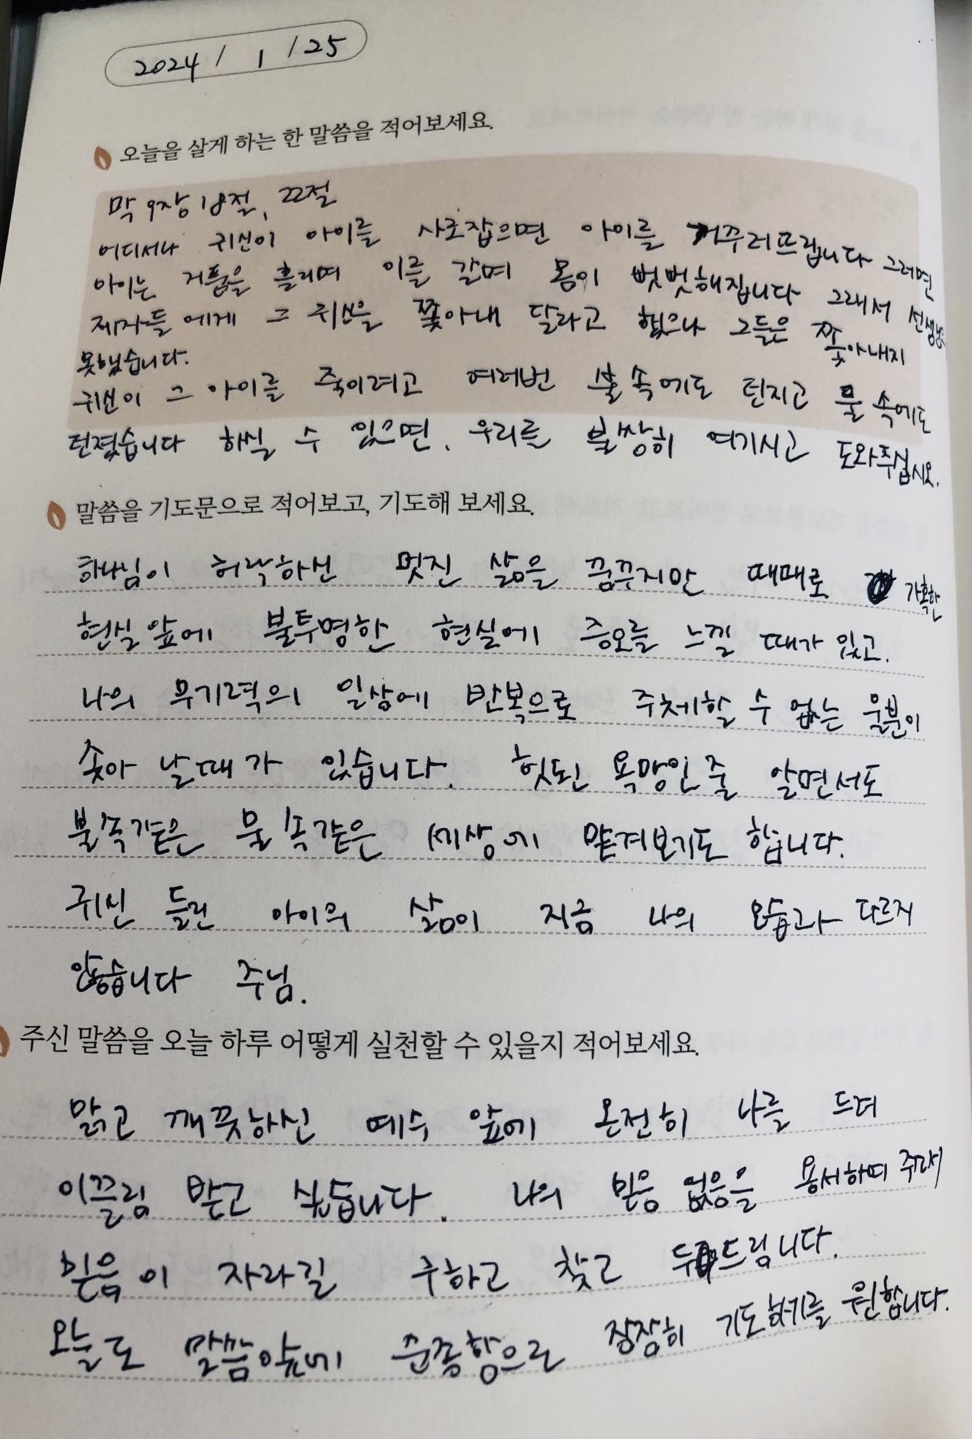 2024 / 1 / 25
오늘을 살게 하는 한 말씀을 적어보세요.
막 9장 18절, 22절
어디서나 귀신이 아이를 사로잡으면 아이를 거꾸러뜨립니다 그러면
아이는 거품을 흘리며 이를 갈며 몸이 벗벗해집니다 그래서 선생님
제자들에게 그 귀신을 쫓아내 달라고 했으나 그들은 쫓아내지
못했습니다.
귀신이 그 아이를 죽이려고 여러번 불 속에도 던지고 물 속에도
던졌습니다 하실 수 있으면, 우리를 불쌍히 여기시고 도와주십시오.
말씀을 기도문으로 적어보고, 기도해 보세요.
하나님이 허락하신 멋진 삶을 꿈꾸지만 때때로 가혹한
현실 앞에 불투명한 현실에 증오를 느낄 때가 있고.
나의 무기력의 일상에 반복으로 주체할 수 없는 울분이
솟아 날때가 있습니다. 헛된 욕망인줄 알면서도
불속같은 물속같은 세상에 맡겨보기도 합니다.
귀신 들린 아이의 삶이 지금 나의 모습과 다르지
않습니다 주님.
주신 말씀을 오늘 하루 어떻게 실천할 수 있을지 적어보세요.
맑고 깨끗하신 예수 앞에 온전히 나를 드려
이끌림 받고 싶습니다. 나의 믿음 없음을 용서하여 주라서
믿음이 자라길 구하고 찾고 두드립니다.
오늘도 말씀앞에 순종함으로 잠잠히 기도하기를 원합니다.